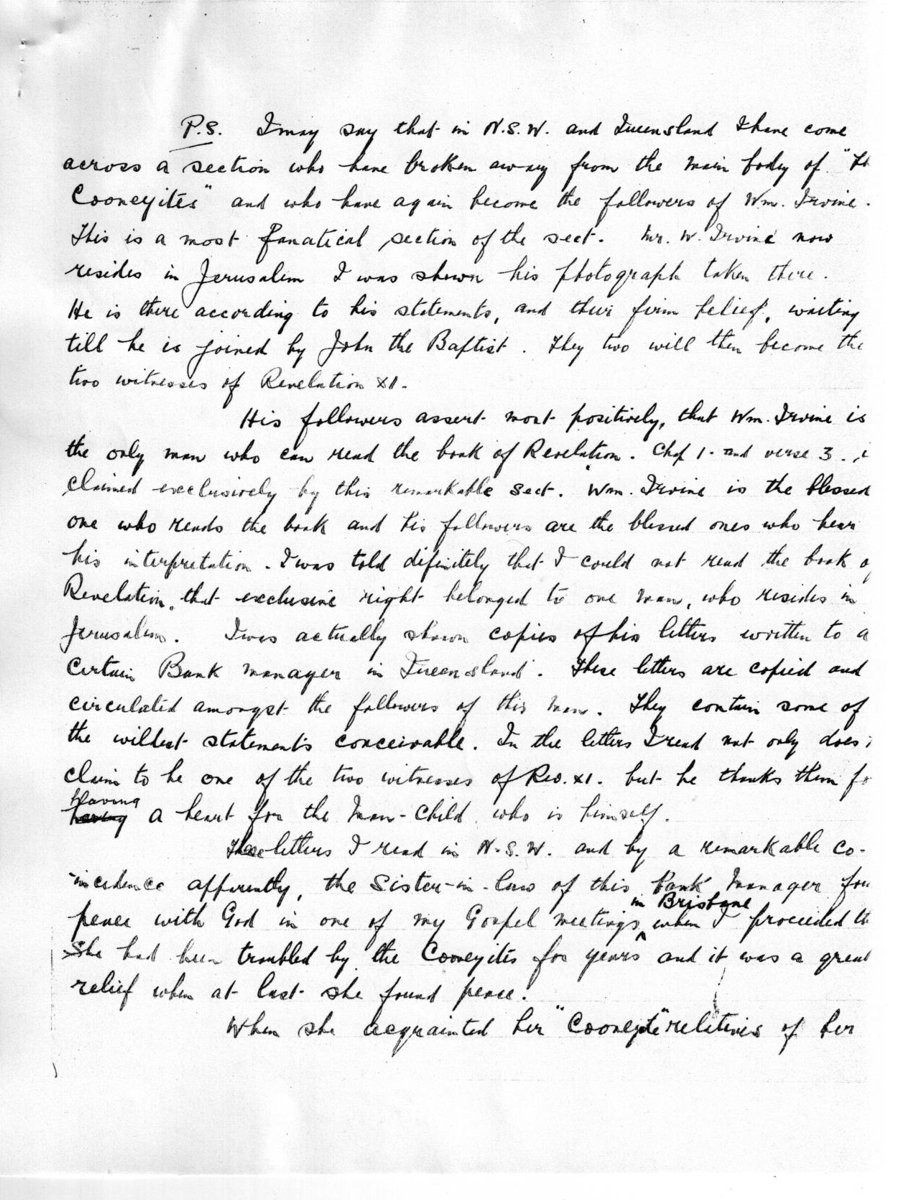 P.S. I may say that in N.S.W. and Queensland I have come
across a section who have broken away from the main body of "Th
Cooneyites" and who have again become the followers of Wm. Irvine.
This is a most fanatical section of the sect. Mr. W. Irvine now
resides in Jerusalem I was shown his photograph taken there.
He is there according to his statements, and their firm belief, waiting
till he is joined by John the Baptist. They two will then become the
two witnesses of Revelation XI.
His followers assert most positively, that Wm. Irvine is
the only man who can read the book of Revelation. Chap 1. and verse 3. i
claimed exclusively by this remarkable sect. Wm. Irvine is the blessed
one who reads the book and his followers are the blessed ones who hear
his interpretation. I was told definitely that I could not read the book o
Revelation, that exclusive right belonged to one man, who resides in
Jerusalem. I was actually shown copies of his letters written to a
certain Bank manager in Queensland. These letters are copied and
circulated amongst the followers of this man. They contain some of
the wildest statements conceivable. In the letters I read not only does
claim to be one of the two witnesses of Rev. XI. but he thanks them fo
having
having a heart for the Man-Child who is himself.
These letters I read in N.S.W. and by a remarkable co-
incedence apparently, the Sister-in-law of this Bank Manager foun
in Brisbane
peace with God in one of my Gospel meetings ^ when I proceeded th
She had been troubled by the Cooneyites for years and it was a great
relief when at last she found peace.
When she acquainted her "Cooneyite" relatives of her